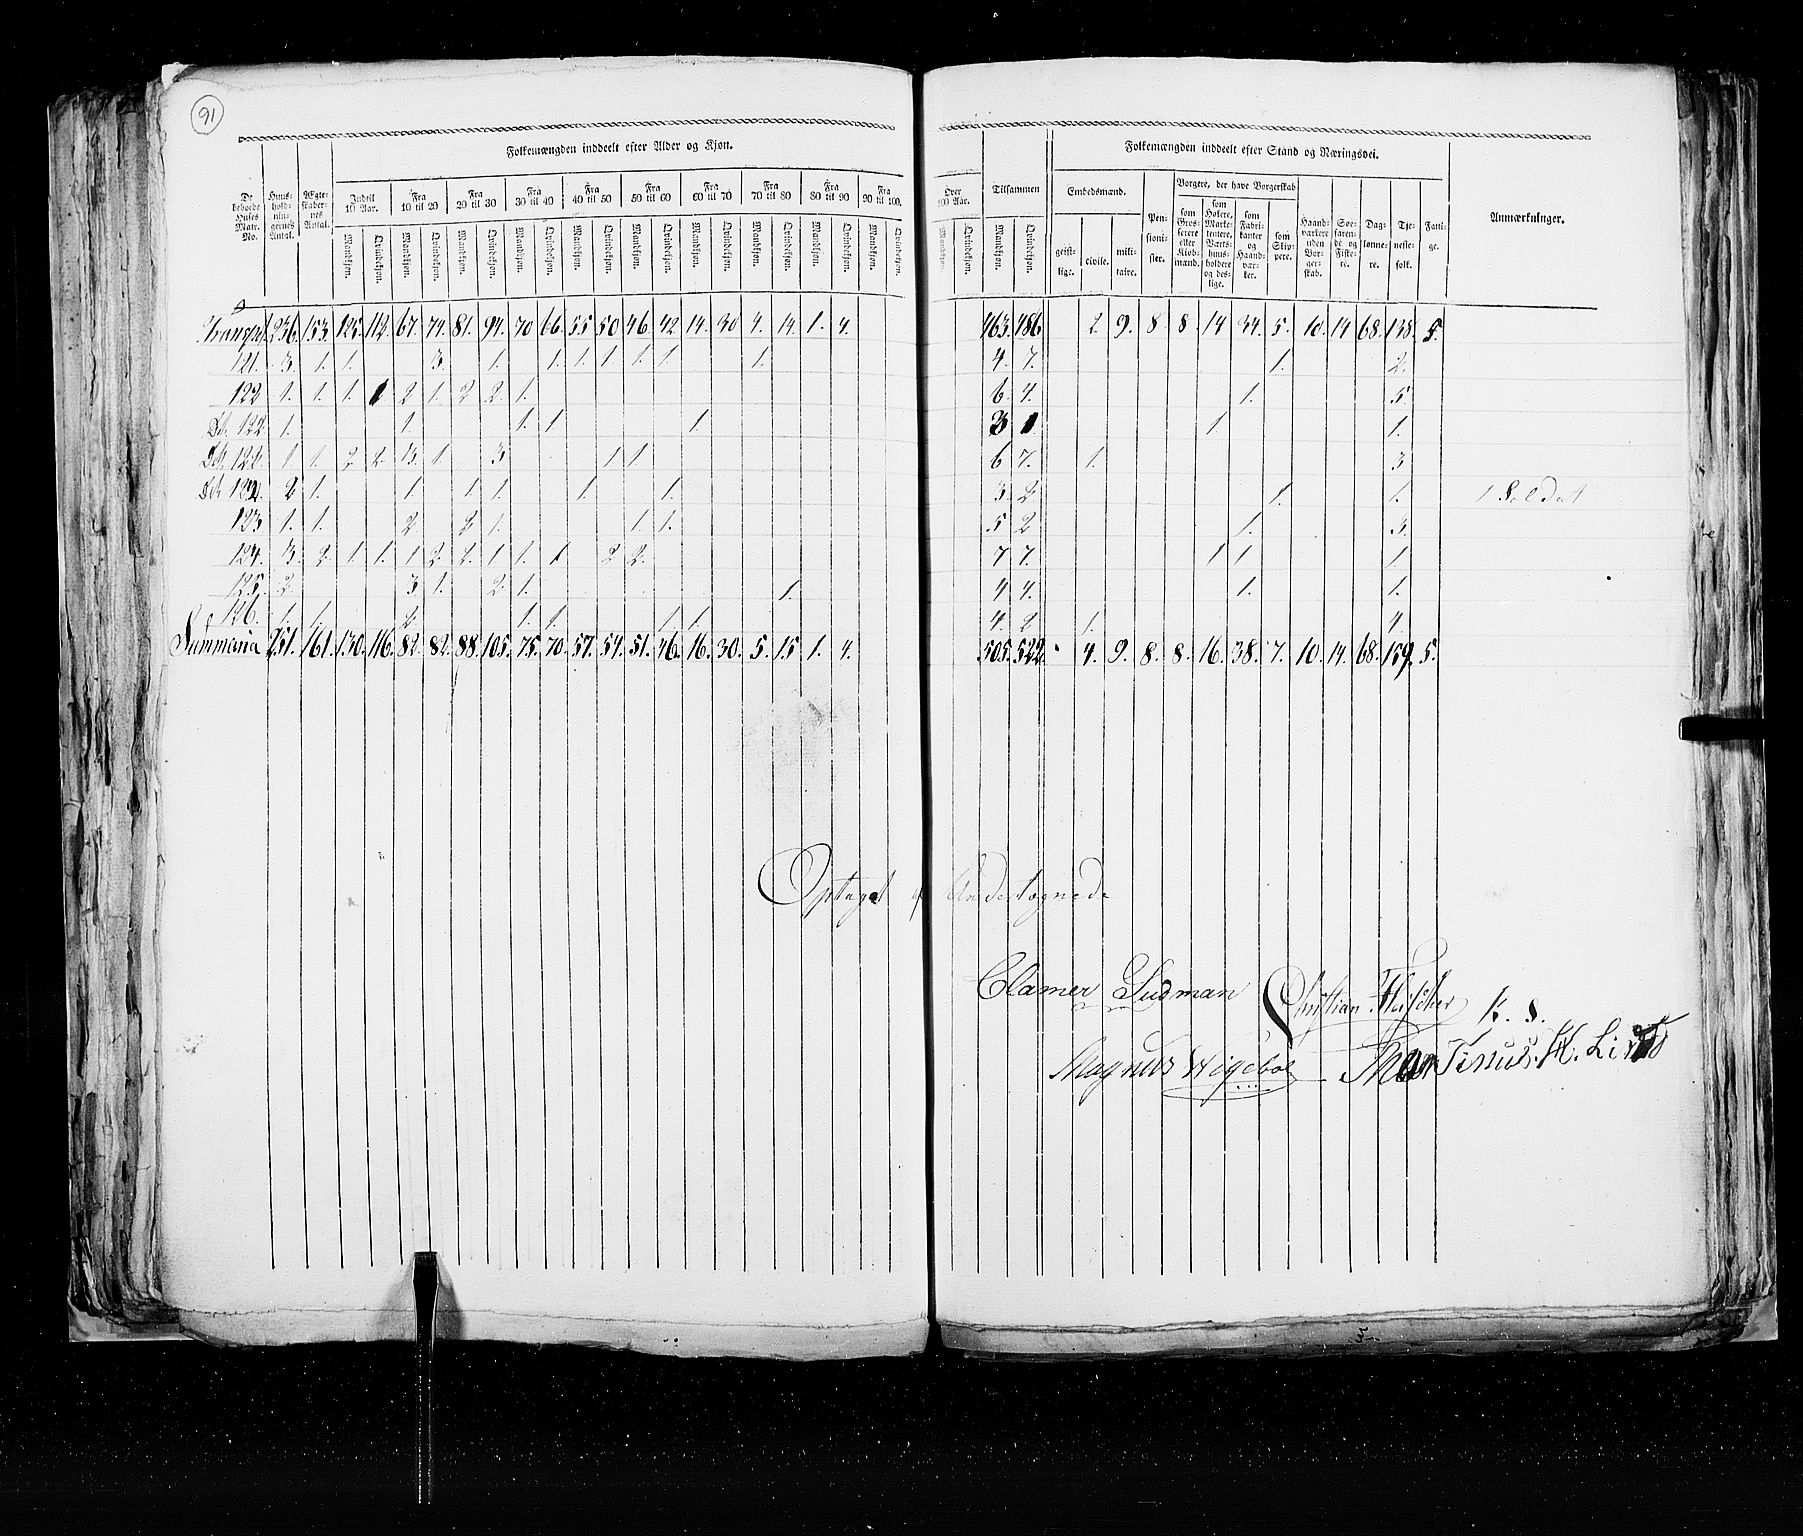 91
Folkemængden inddeelt efter Alder og Kjøn.
De beboede Huses Matr. No. | Huusholdningernes Antal. | Ægteskabernes Antal. | Indtil 10 Aar. | Fra 10 til 20 | Fra 20 til 30 | Fra 30 til 40 | Fra 40 til 50 | Fra 50 til 60 | Fra 60 til 70 | Fra 70 til 80 | Fra 80 til 90 | Fra 90 til 100.
Mandkjøn. Qvindekjøn. Mandkjøn. Qvindekjøn. Mandkjøn. Qvindekjøn. Mandkjøn. Qvindekjøn. Mandkjøn. Qvindekjøn. Mandkjøn. Qvindekjøn. Mandkjøn. Qvindekjøn. Mandkjøn. Qvindekjøn. Mandkjøn. Qvindekjøn. Mandkjøn. Qvindekjøn.
Over 100 Aar. | Tilsammen | Folkemængden inddeelt efter Stand og Næringsvei. | Anmærkninger.
Mandkjøn. Qvindekjøn. Mandkjøn. Qvindekjøn.
Embedsmænd. | geistlige. | civile. | militaire. | Pensionister. | Borgere, der have Borgerskab | som Grosserere eller Kiøbmænd. | som Høkere, Marketentere, Værtshuusholdere og deslige. | som Fabrikanter og Haandværker. | som Skippere. | Haandværkere uden Borgerskab. | Søefarende og Fiskere. | Daglønnere. | Tjenestefolk. | Fattige.
Transport 236. 153. 125. 112. 67. 74. 81. 94. 70 66. 55 50 46. 42. 14. 30 4. 14. 1. 4. 463. 486. 2. 9. 8. 8. 14 34. 5. 10. 14 68. 138. 5.
121. 3. 1. 1. 3. 1. 1. 1. 1. 1. 1. 1. 4. 7. 1. 2.
122 1. 1. 1. 1 2 1. 2 2. 1. 6. 4. 1. 5
122 1. 1. 1. 1. 1. 3 1. 1. 1.
122. 1 1. 2 2. 3. 1. 3 1 1. 6 7. 1. 3
122. 2 1. 1. 1. 1. 1. 1. 3. 2. 1. 1. 1 Soldat
123 1. 1. 2 2 1. 1. 1. 5 2 1. 3.
124. 3. 2. 1. 1. 1 2. 2. 1 1. 1 2 2. 7 7. 1 1. 1
125. 2 3 1. 2. 1. 1. 4 4. 1. 1.
126. 1. 1. 2 1. 1. 1. 1. 4. 2 1. 4.
Summaria 251. 161. 130. 116. 82. 82. 88. 105. 75. 70. 57. 54. 51. 46. 16. 30. 5. 15 1. 4. 505. 522. 4. 9. 8. 8. 16. 38. 7. 10. 14. 68. 159. 5.
Optaget af Undertegnede
Clamer Sudman Christian Fleischer K. S.
Magnus